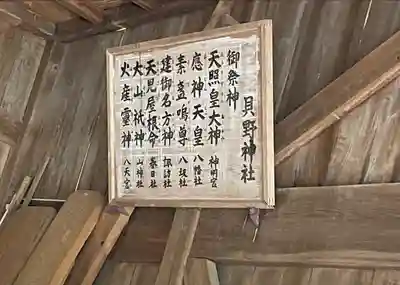 貝野神社
御祭神
天照皇大神 神明宮
應神天皇 八幡社
素盞嗚尊 八坂社
建御名方神 諏訪社
天見屋根命 春日社
大山祇神 山神社
火産霊神 八天宮